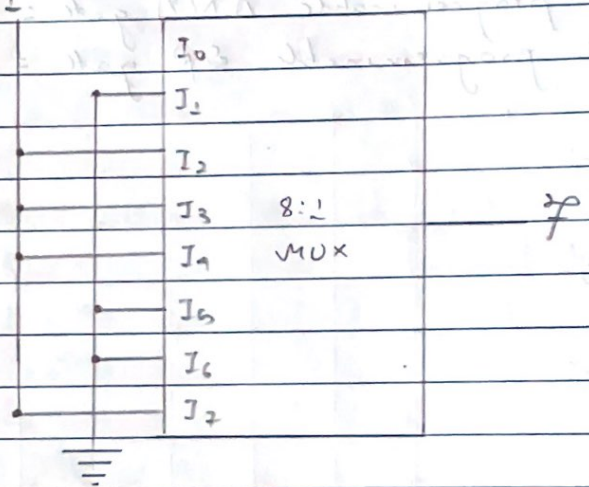 1
I0
I1
I2
I3 8:1
I4 MUX
I5
I6
I7
F